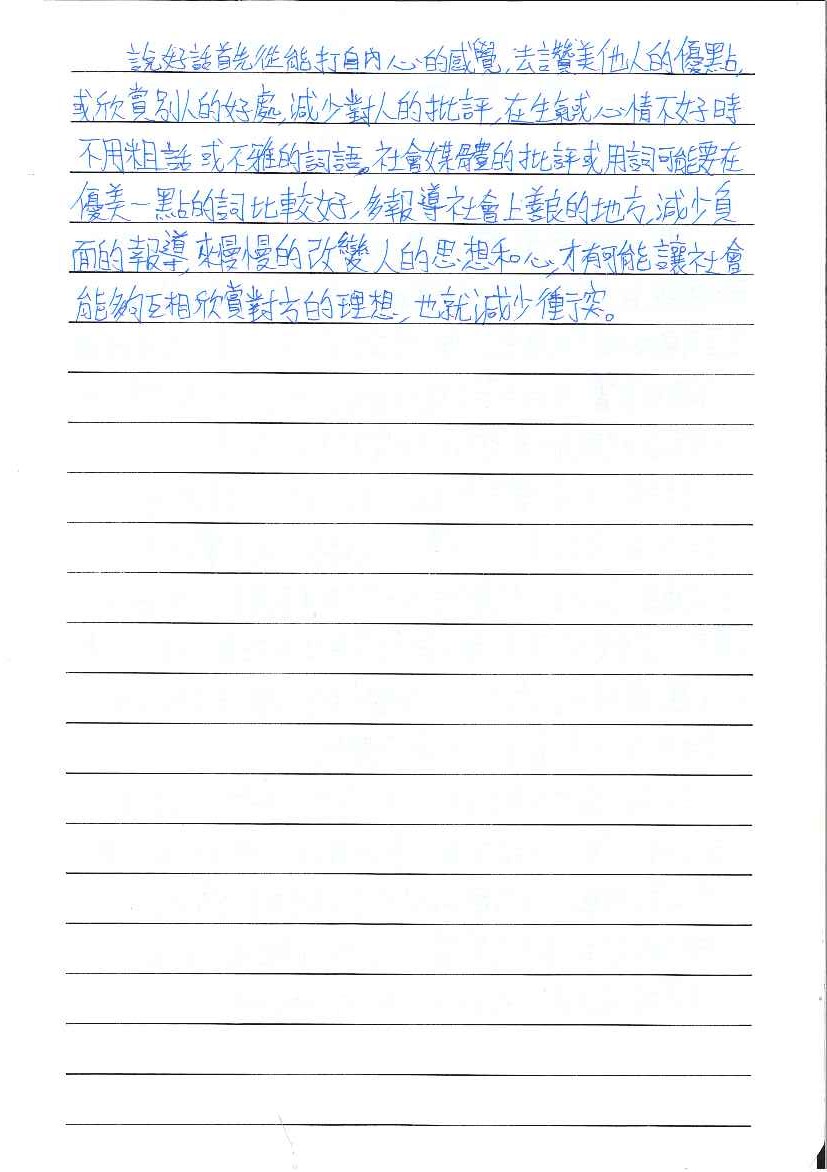 說好話首先從能打自內心的感覺,去讚美他人的優點,
或欣賞別人的好處,減少對人的批評,在生氣或心情不好時
不用粗話或不雅的詞語。社會媒體的批評或用詞可能要在
優美一點的詞比較好,多報導社會上善良的地方,減少負
面的報導,來慢慢的改變人的思想和心,才有可能讓社會
能夠互相欣賞對方的理想,也就減少衝突。